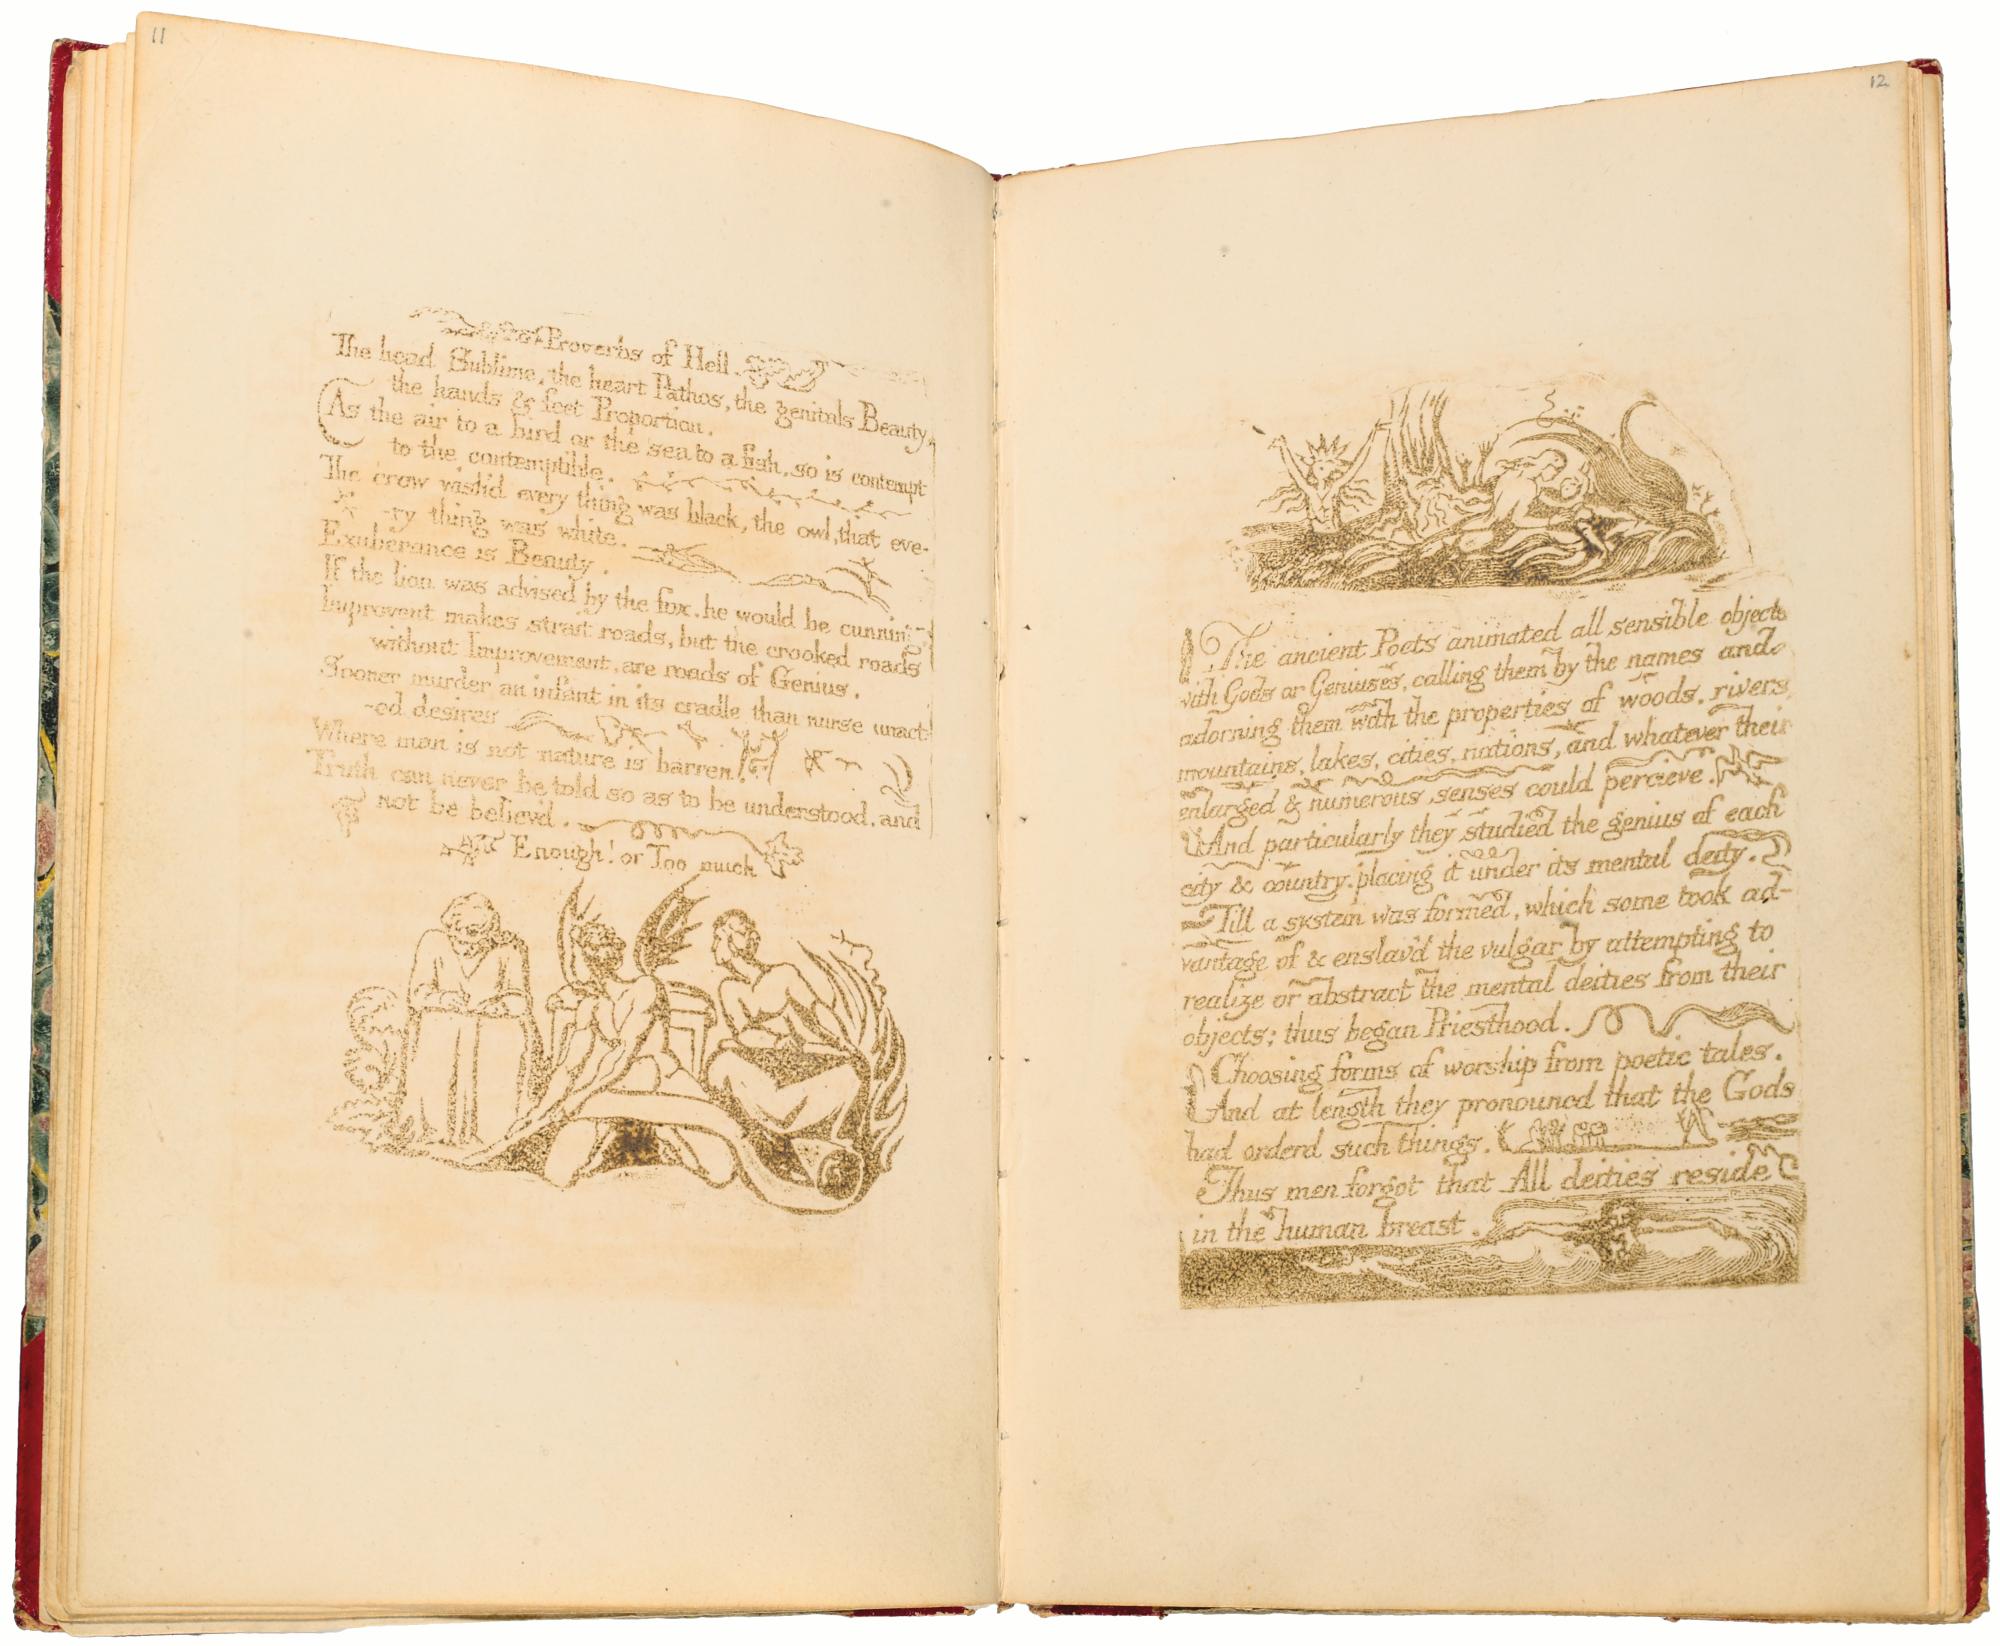 11
Proverbs of Hell.
The head Sublime, the heart Pathos, the genitals Beauty,
the hands & feet Proportion.
As the air to a bird or the sea to a fish, so is contempt
to the contemptible.
The crow wish'd every thing was black, the owl, that eve-
-ry thing was white.
Exuberance is Beauty.
If the lion was advised by the fox. he would be cunning.
Improvent makes strait roads, but the crooked roads
without Improvement, are roads of Genius.
Sooner murder an infant in its cradle than nurse unact-
-ed desires
Where man is not nature is barren.
Truth can never be told so as to be understood, and
not be believ'd.
Enough! or Too much
12
The ancient Poets animated all sensible objects
with Gods or Geniuses, calling them by the names and
adorning them with the properties of woods, rivers,
mountains, lakes, cities, nations, and whatever their
enlarged & numerous senses could percieve.
And particularly they studied the genius of each
city & country. placing it under its mental deity.
Till a system was formed, which some took ad-
vantage of & enslav'd the vulgar by attempting to
realize or abstract the mental deities from their
objects; thus began Priesthood.
Choosing forms of worship from poetic tales.
And at length they pronouncd that the Gods
had orderd such things.
Thus men forgot that All deities reside
in the human breast.